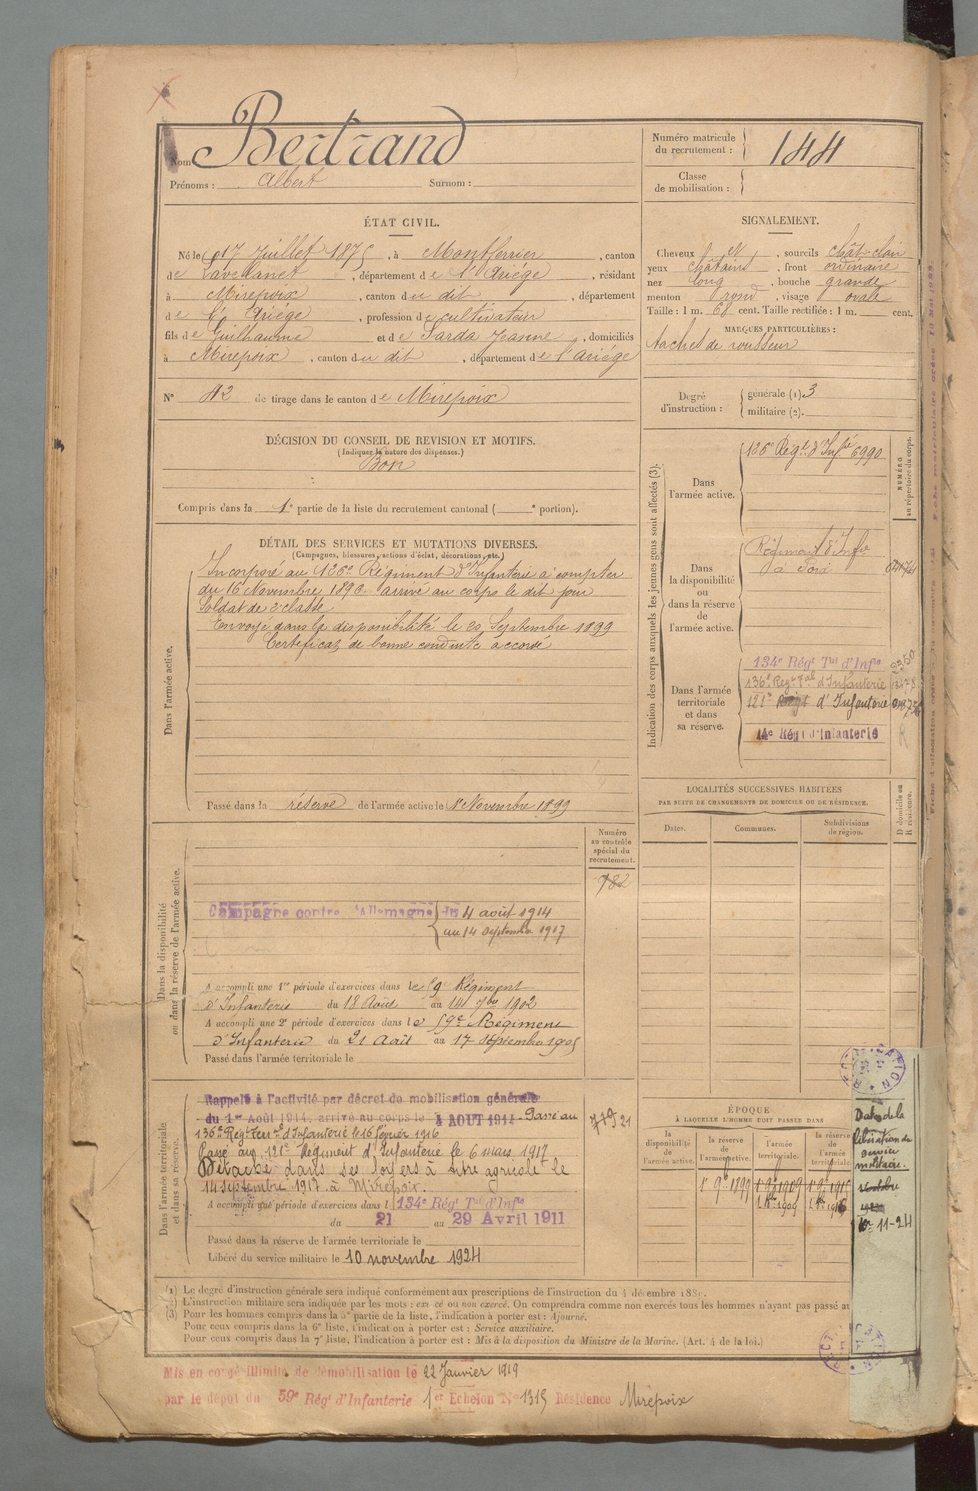 Nom Bertrand
Prénoms : Albert Surnom :
Numéro matricule
du recrutement : 144
Classe
de mobilisation :
ÉTAT CIVIL.
Né le 17 Juillet 1875, à Montferrier, canton
de Lavelanet, département de l'Ariége, résidant
à Mirepoix, canton du dit, département
de l'Ariége, profession de cultivateur
fils de Guilhaume et de Sarda Jeanne, domiciliés
à Mirepoix, canton du dit, département de l'ariége
SIGNALEMENT.
Cheveux et, sourcils chât-clair
yeux châtains, front ordinaire
nez long, bouche grande
menton rond, visage ovale
Taille : 1 m. 68 cent. Taille rectifiée : 1 m. cent.
MARQUES PARTICULIÈRES :
taches de rousseur
N° 42 de tirage dans le canton de Mirepoix
Degré
d'instruction :
générale (1). 3
militaire (2).
DÉCISION DU CONSEIL DE REVISION ET MOTIFS.
(Indiquer la nature des dispenses.)
Bon
Compris dans la 1e partie de la liste du recrutement cantonal ( e portion).
DÉTAIL DES SERVICES ET MUTATIONS DIVERSES.
(Campagnes, blessures, actions d'éclat, décorations, etc.)
Dans l'armée active.
Incorporé au 126e Régiment d'Infanterie à compter
du 16 Novembre 1896 arrivé au corps le dit jour
Soldat de 2e classe
Envoyé dans la disponibilité le 20 Septembre 1899
Certificat de bonne conduite accordé
Passé dans la réserve de l'armée active le 1er Novembre 1899
Indication des corps auxquels les jeunes gens sont affectés (3).
NUMÉRO
au répertoire du corps.
Dans
l'armée active.
126e Régt d'Infie 6990
Dans
la disponibilité
ou
dans la réserve
de
l'armée active.
Régiment d'Infie
à Foix
Dans l'armée
territoriale
et dans
sa réserve.
134e Régt Tal d'Infie
136e Regt Tal d'Infanterie
121e Régt d'Infanterie
14e Régt d'Infanterie
LOCALITÉS SUCCESSIVES HABITÉES
PAR SUITE DE CHANGEMENTS DE DOMICILE OU DE RÉSIDENCE.
Dates. Communes. Subdivisions
de région.
D domicile ou
R résidence.
Dans la disponibilité
ou dans la réserve de l'armée active.
Numéro
au contrôle
spécial du
recrutement.
782
Campagne contre l'Allemagne du 4 août 1914
au 14 septembre 1917
A accompli une 1re période d'exercices dans le 59e Régiment
d'Infanterie du 18 Août au 14 7bre 1902
A accompli une 2e période d'exercices dans le 59e Régiment
d'Infanterie du 21 Août au 17 septembre 1905
Passé dans l'armée territoriale le
Dans l'armée territoriale
et dans sa réserve.
Rappelé à l'activité par décret de mobilisation générale
du 1er Août 1914, arrivé au corps le 4 AOUT 1914 Passé au
136e Régt Terr. d'Infanterie le 16 février 1916
Passé au 121e Régiment d'Infanterie le 6 mars 1917
Détaché dans ses foyers à titre agricole le
14 septembre 1917 à Mirepoix.
A accompli une période d'exercices dans l 134e Régt Tal d'Infie
du 21 au 29 Avril 1911
Passé dans la réserve de l'armée territoriale le
Libéré du service militaire le 10 novembre 1924
ÉPOQUE
À LAQUELLE L'HOMME DOIT PASSER DANS
la
disponibilité
de
l'armée active.
la réserve
de
l'armée active.
l'armée
territoriale.
la réserve
de l'armée
territoriale.
1r 9bre 1899 1r 9bre 1909
1r 8bre 1909
Date de la
libération du
service
militaire.
octobre
10-11-24
(1) Le degré d'instruction générale sera indiqué conformément aux prescriptions de l'instruction du 4 décembre 1889.
(2) L'instruction militaire sera indiquée par les mots : exercé ou non exercé. On comprendra comme non exercés tous les hommes n'ayant pas passé au
(3) Pour les hommes compris dans la 5e partie de la liste, l'indication à porter est : Ajourné.
Pour ceux compris dans la 6e liste, l'indication à porter est : Service auxiliaire.
Pour ceux compris dans la 7e liste, l'indication à porter est : Mis à la disposition du Ministre de la Marine. (Art. 4 de la loi.)
Mis en congé illimité de démobilisation le 22 Janvier 1919
par le dépôt du 59e Régt d'Infanterie 1er Echelon N° 1315 Résidence Mirepoix